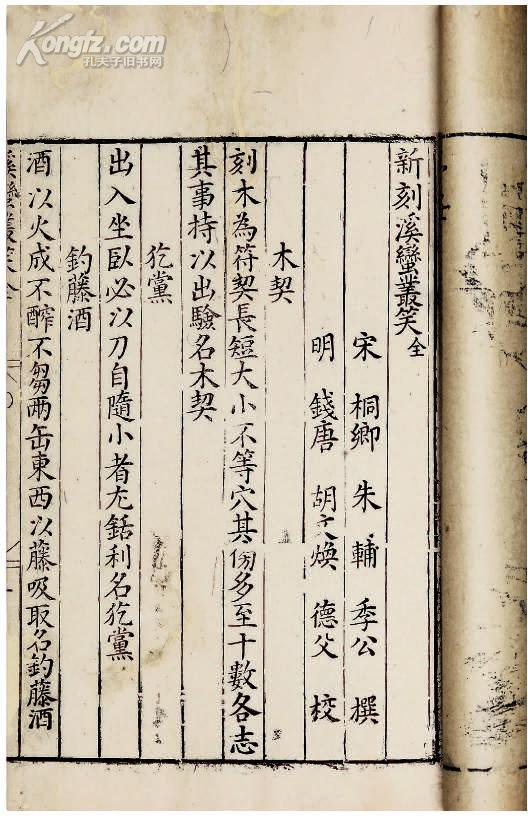 Kongfz.com
孔夫子旧书网
新刻溪蠻叢笑全
宋桐鄉朱輔季公撰
明錢唐胡文煥德父校
木契
刻木為符契長短大小不等穴其傍多至十數各志
其事持以出驗名木契
犵黨
出入坐臥必以刀自隨小者尤銛利名犵黨
釣藤酒
酒以火成不醡不芻兩缶東西以藤吸取名釣藤酒
溪蠻叢笑全